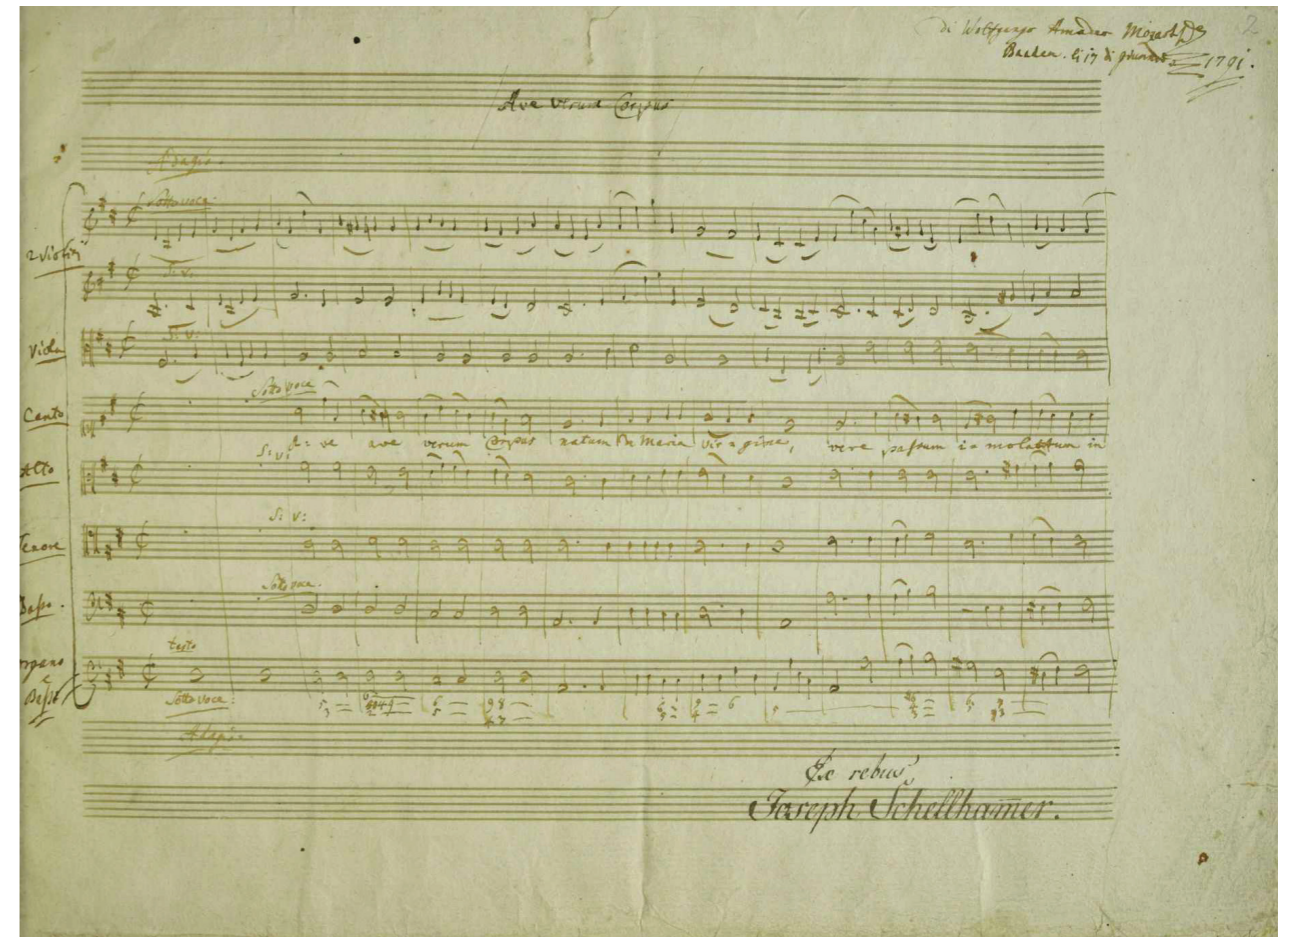 2
di Wolfgango Amadeo Mozart
Baaden. li 17 di giunio 1791.
Ave verum Corpus
Adagio.
Sotto voce
2 Violini
S: V:
Viola
S: V:
Sotto voce
Canto
A: ve ave verum Corpus natum de Maria virgine, vere passum in
Alto
S: V:
Tenore
S: V:
Basso.
Sotto voce.
Organo e Basso
tasto
Sotto voce:
Adagio.
Ex rebus
Joseph Schellham̄er.